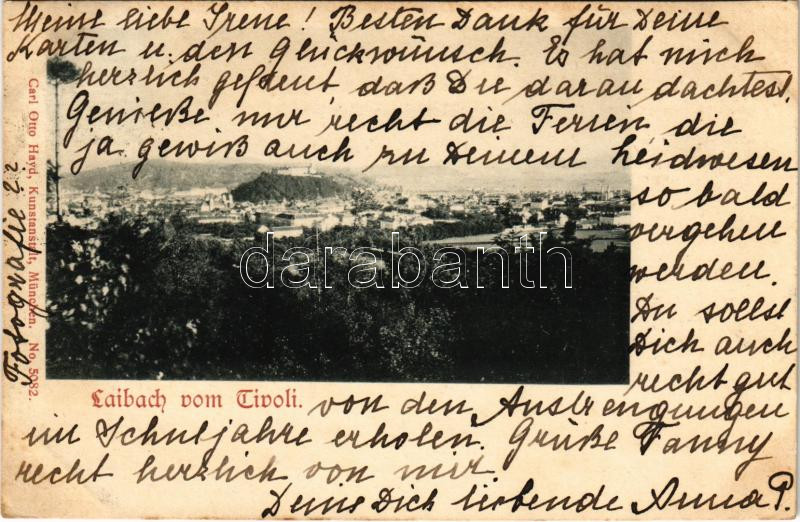 Meine liebe Irene! Besten Dank für Deine
Karten u. den Glückwunsch. Es hat mich
herzlich gefreut, daß Du daran dachtest.
Genieße nur recht die Ferien, die
ja gewiß auch zu Deinem Leidwesen
so bald
vergehen
werden.
Du sollst
Dich auch
recht gut
von den Anstrengungen
im Schuljahre erholen. Grüße Fanny
recht herzlich von mir.
Deine Dich liebende Anna P.
Fotografie ??
Carl Otto Hayd, Kunstanstalt, München. No. 5082.
darabanth
Laibach vom Tivoli.